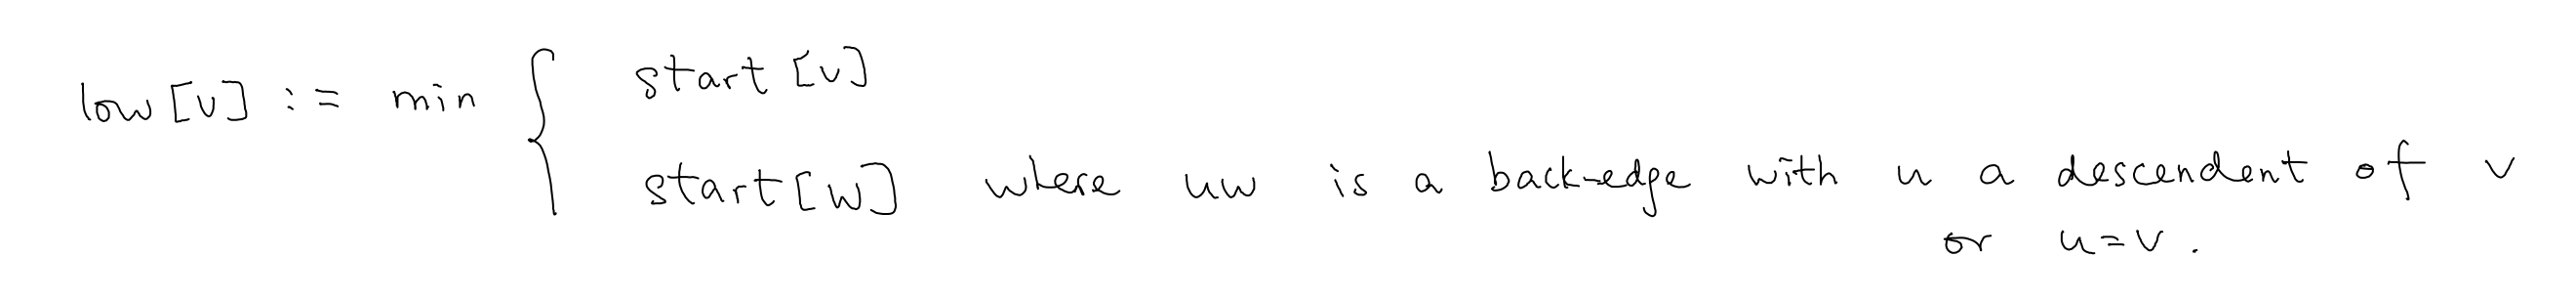 low[v] := min { start[v]
start[w] where uw is a back-edge with u a descendent of v
or u=v.